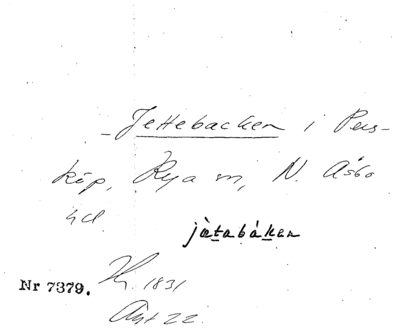 Jettebacken i Pers-
köp, Rya sn, N. Åsbo
hd.
jätabáken
Nr 7379. 1831
Akt 22.